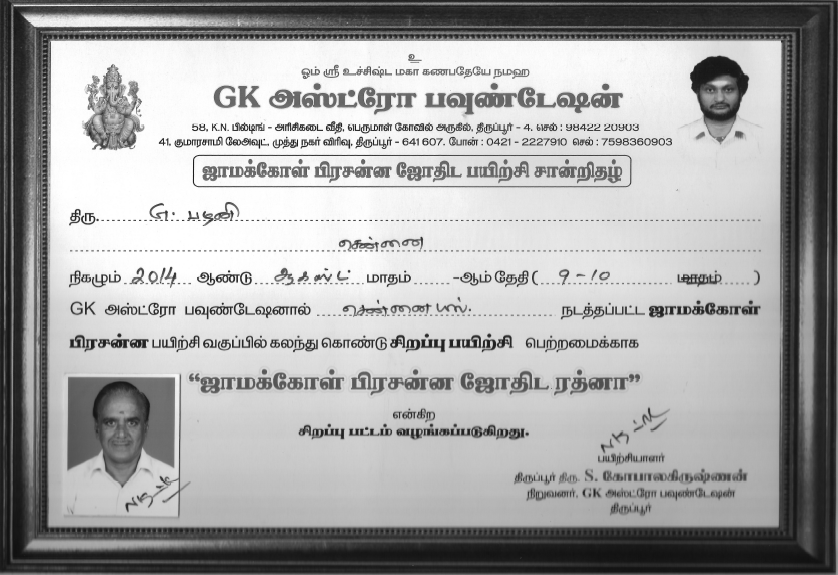 உ
ஓம் ஸ்ரீ உச்சிஷ்ட மகா கணபதயே நமஹ
GK அஸ்ட்ரோ பவுண்டேஷன்
58, K.N. பில்டிங் - அரிசிகடை வீதி, பெருமாள் கோவில் அருகில், திருப்பூர் - 4. செல் : 98422 20903
41, குமாரசாமி லேஅவுட், முத்து நகர் விரிவு, திருப்பூர் - 641 607. போன் : 0421 - 2227910 செல் : 7598360903
ஜாமக்கோள் பிரசன்ன ஜோதிட பயிற்சி சான்றிதழ்
திரு. G. பழனி
சென்னை
நிகழும் 2014 ஆண்டு ஆகஸ்ட் மாதம் -ஆம் தேதி ( 9-10 மாதம் )
GK அஸ்ட்ரோ பவுண்டேஷனால் சென்னையில். நடத்தப்பட்ட ஜாமக்கோள்
பிரசன்ன பயிற்சி வகுப்பில் கலந்து கொண்டு சிறப்பு பயிற்சி பெற்றமைக்காக
“ஜாமக்கோள் பிரசன்ன ஜோதிட ரத்னா”
என்கிற
சிறப்பு பட்டம் வழங்கப்படுகிறது.
பயிற்சியாளர்
திருப்பூர் திரு. S. கோபாலகிருஷ்ணன்
நிறுவனர், GK அஸ்ட்ரோ பவுண்டேஷன்
திருப்பூர்